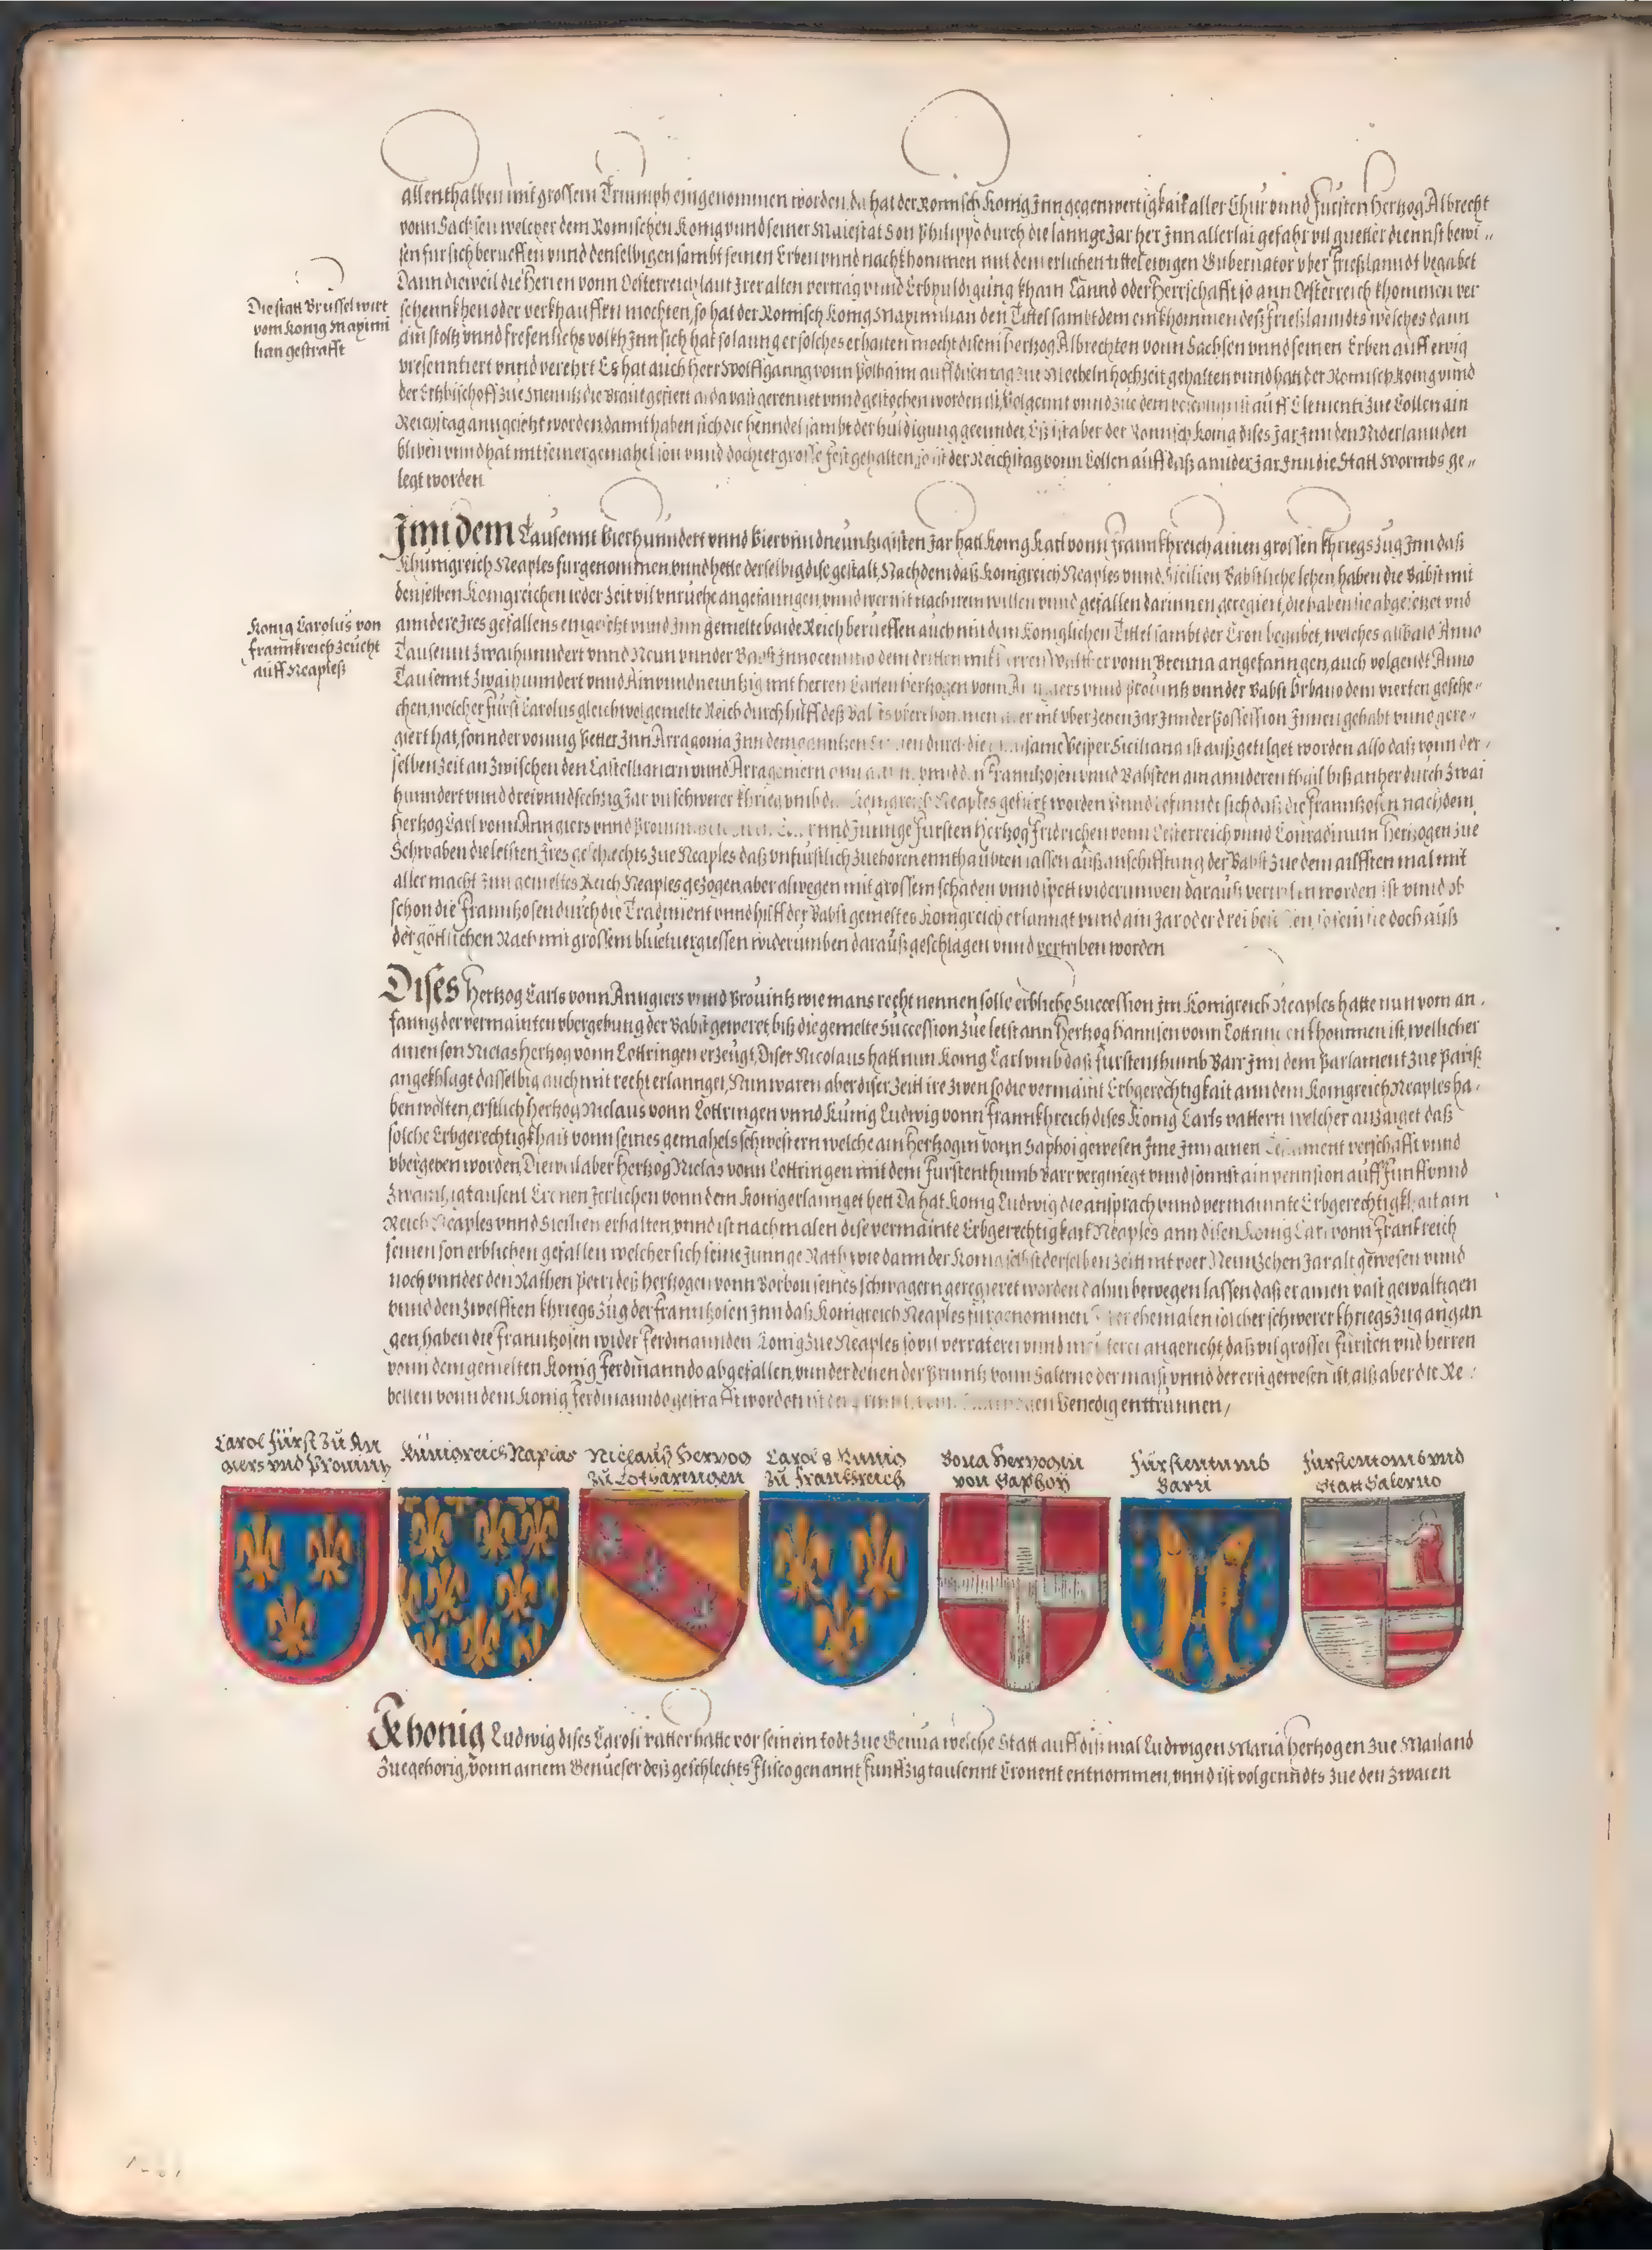 allenthalben mit grossem Triumph eingenommen worden, da hat der Romisch Konig Inn gegenwertigkait aller Chur vnnd Fursten Hertzog Albrecht
vonn Sachsen welcher dem Romischen Konig vnnd seiner Maiestat Son Philippo durch die lannge Jar her Inn allerlai gefahr vil guetter diennst bewi-
sen fur sich berueffen vnnd denselbigen sambt seinen Erben vnnd nachkhommen mit dem erlichen tittel ewigen Gubernator vber Frießlanndt begabet
Dann dieweil die Herren vonn Oesterreich laut Irer alten vertrag vnnd Erbhuldigung kham Lannd oder Herrschafft so ann Oesterreich khommen ver
schennkhen oder verkhauffen mochten, so hat der Romisch Konig Maximilian den Tittel sambt dem einkhommen deß Frießlanndts welches dann
Die statt Brussel wirt
vom Konig Maximi
lian gestrafft
ain stoltz vnnd frefenlichs volkh Inn sich hat so lanng er solches erhalten mocht disem Hertzog Albrechten vonn Sachsen vnnd seinen Erben auff ewig
presenntiert vnnd verehrt Es hat auch Herr Wolffganng vonn Polhaim auff disen tag zue Mecheln hochzeit gehalten vnnd hatt der Romisch Konig vnnd
der Ertzbischoff zue die Braut gefiert alda vast gerennet vnnd gestochen worden ist, Volgennt vnnd zue dem auff Clementi zue Collen ain
Reichstag anngesetzt worden, damit haben sich die henndel sambt der huldigung geenndet, Eß ist aber der Romisch Konig dises Jar Inn den Niderlannden
bliben vnnd hat mit seiner gemahel son vnnd dochter grosse fest gehalten, so ist der Reichstag vonn Collen auff daß annder Jar Inn die Statt Wormbs ge-
legt worden
Inn dem Tausennt Vierhunndert vnnd Viervnndneuntzigisten Jar hatt Konig Karl vonn Frannkhreich ainen grossen khriegszug Inn daß
Khunigreich Neaples furgenommen, vnnd hette derselbig dise gestalt, Nachdem daß Konigreich Neaples vnnd Sicilien Babstliche lehen, haben die Babst mit
denselben Konigreichen ieder Zeit vil vnrueche angefanngen, vnnd wer nit nach irem willen vnnd gefallen darinnen geregiert, die haben sie abgesetzet vnd
Konig Carolus von
Frannkreich zeucht
auff Neapleß
anndere Ires gefallens eingesetzt vnnd Inn gemelte baide Reich berueffen auch mit dem Koniglichen Tittel sambt der Cron begabet, welches alsbald Anno
Tausennt Zwaihunndert vnnd Neun vnnder Babst Innocenntio dem dritten mit Herren Walther vonn Brenna angefanngen, auch volgendt Anno
Tausennt Zwaihunndert vnnd Ainvnndneuntzig mit Herren Carlen Hertzogen vonn vnnd Prouintz vnnder Babst Vrbano dem vierten geschehe-
chen, welcher Furst Carolus gleichwol gemelte Reich durch hilff deß nit vber Zehen Jar Inn der Possession Innen gehabt vnnd gere-
giert hat, sonnder vonn Petter Inn Arragonia Inn dem durch die Vesper Siciliana ist außgetilget worden also daß vonn der-
selben Zeit an zwischen den Castellianern vnnd Arragoniern Frannzosen vnnd Babsten am annderen thail biß anher durch Zwai
hunndert vnnd dreivnndsechtzig Jar ein schwerer khrieg vmb Konigreich Neaples gefiert worden Vnnd befinndt sich daß die Franntzosen nachdem
Hertzog Carl vonn Anngiers vnnd vnnd Junnge Fursten Hertzog Fridrichen vonn Oesterreich vnnd Conradinum Hertzogen zue
Schwaben die letsten Ires geschlechts zue Neaples daß vnfurstlich zuehoren ennthaubten lassen auß anschifftung der Babst zue dem ailfften mal mit
aller macht Inn gemeltes Reich Neaples gezogen, aber alwegen mit grossem schaden vnnd spott widerumben darauß worden ist vnnd ob
schon die Franntzosen durch die Tradiment vnnd hilff der Babst gemeltes Konigreich erlanngt vnnd ain Jar oder drei so sein sie doch auß
der götlichen Rach mit grossem bluetuergiessen widerumben darauß geschlagen vnnd vertriben worden
Dises Hertzog Carls vonn Anngiers vnnd Prouintz wie mans recht nennen solle erbliche Succession Im Konigreich Neaples hatte nun vom an-
fanng der vermainten vbergebung der Babst geweret, biß die gemelte Succession zue letst ann Hertzog Hannsen vonn Lottringen khommen ist, wellicher
ainen son Niclas Hertzog vonn Lottringen erzeugt, Diser Nicolaus hatt nun Konig Carl vmb daß furstenthumb Barr Inn dem Parlament zue Pariß
angekhlagt dasselbig auch mit recht erlannget, Nun waren aber diser Zeitt ire zwen so die vermaint Erbgerechtigkait ann dem Konigreich Neaples ha-
ben wolten, erstlich Hertzog Niclaus vonn Lottringen vnnd Kunig Ludwig vonn Frannkhreich dises Konig Carls vattern welcher anzaiget daß
solche Erbgerechtigkhait vonn seines gemahels schwestern welche ain Hertzogin vonn Saphoi gewesen Ime Inn ainen verschafft vnnd
vbergeben worden, Dieweil aber Hertzog Niclas vonn Lottringen mit dem furstenthumb Barr vergniegt vnnd sonnst ain pennsion auff Funffvnnd
zwaintzigtausent Cronen Jerlichen vonn dem Konig erlannget hett Da hat Konig Ludwig die ansprach vnnd vermainnte Erbgerechtigkhait am
Reich Neaples vnnd Sicilien erhalten, vnnd ist nachmalen dise vermainte Erbgerechtigkait Neaples ann disen Konig Carl vonn Frankreich
seinen son erblichen gefallen welcher sich seine Junnge Rath wie dann der Konig selbst derselben zeitt nit vber Neuntzehen Jar alt gewesen vnnd
noch vnnder den Rathen Petri deß Hertzogen vonn Borbon seines schwagern geregieret worden dahin bewegen lassen daß er ainen vast gewaltigen
vnnd den zwelfften khriegszug der Franntzosen Inn daß Konigreich Neaples furgenommen ehemalen solcher schwerer khriegszug angan
gen, haben die Franntzosen wider Ferdinannden Konig zue Neaples so vil verraterei vnnd angericht, daß vil grosser Fursten vnd Herren
vonn dem gemelten Konig Ferdinanndo abgefallen, vnnder denen der Printz vonn Salerno der maist vnnd der erst gewesen ist, alß aber die Re-
bellen vonn dem Konig Ferdinanndo gestrafft worden Venedig enttrunnen,
Carol Fürst zu An
giers vnd Prouintz
Künigreich Naplas
Niclauß Hertzog
zu Lotharingen
Carol 8 Kunig
zu Frankreich
Bona Hertzogin
von Saphoy
Fürstentumb
Barri
Fürstentomb vnd
Statt Salerno
Khonig Ludwig dises Caroli vatter hatte vor seinem todt zue Genua welche Statt auff diß mal Ludwigen Maria Hertzogen zue Mailand
zuegehorig, vonn ainem Genueser deß geschlechts Flisco genannt Funffzig tausennt Cronen entnommen, vnnd ist volgenndts zue den zwaien